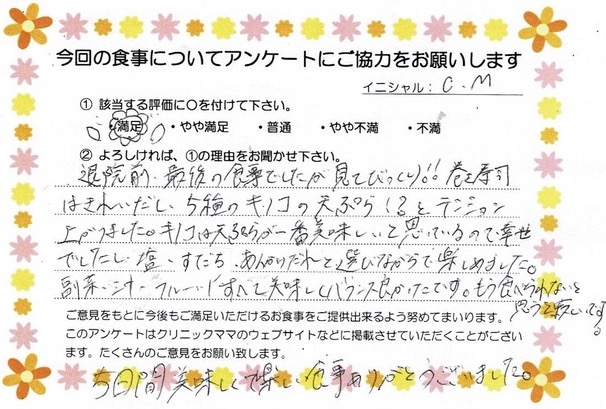 今回の食事についてアンケートにご協力をお願いします
イニシャル: C.M
① 該当する評価に○を付けて下さい。
・満足 ・やや満足 ・普通 ・やや不満 ・不満
② よろしければ、①の理由をお聞かせ下さい。
退院前、最後の食事でしたが見てびっくり!! 巻き寿司
はきれいだし、5種のキノコの天ぷらくるとテンション
上がりました。キノコは天ぷらが一番美味しいと思っているので幸せ
でしたし、塩、すだち、あんかけだれと選びながらで楽しめました。
副菜、汁、フルーツすべて美味しくバランス良かったです。もう食べられないと
思うと寂しいです。
ご意見をもとに今後もご満足いただけるお食事をご提供出来るよう努めてまいります。
このアンケートはクリニックママのウェブサイトなどに掲載させていただくことがござい
ます。たくさんのご意見をお願い致します。
5日間美味しくて楽しい食事ありがとうございました。